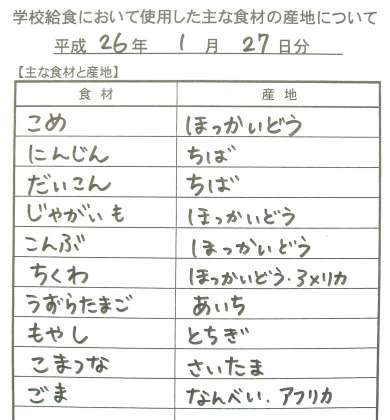 学校給食において使用した主な食材の産地について
平成 26 年 1 月 27 日分
【主な食材と産地】
食材 産地
こめ ほっかいどう
にんじん ちば
だいこん ちば
じゃがいも ほっかいどう
こんぶ ほっかいどう
ちくわ ほっかいどう・アメリカ
うずらたまご あいち
もやし とちぎ
こまつな さいたま
ごま なんべい．アフリカ